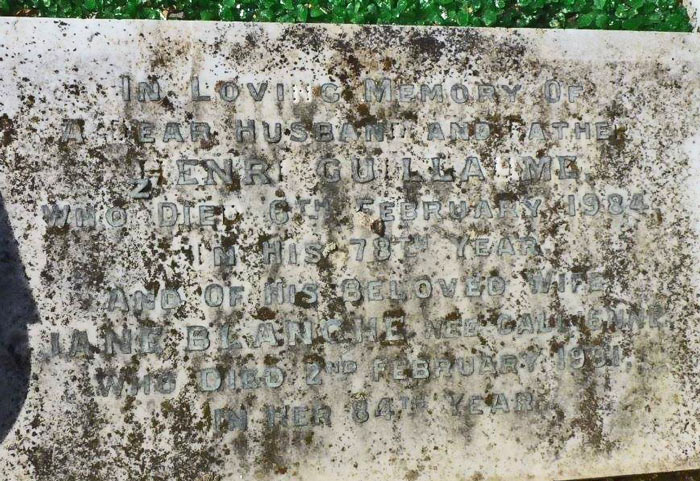 IN LOVING MEMORY OF
A DEAR HUSBAND AND FATHER
HENRI GUILLAUME.
WHO DIED 6TH FEBRUARY 1984.
IN HIS 78TH YEAR
AND OF HIS BELOVED WIFE
JANE BLANCHE NEE
WHO DIED 2ND FEBRUARY 1991.
IN HER 84TH YEAR